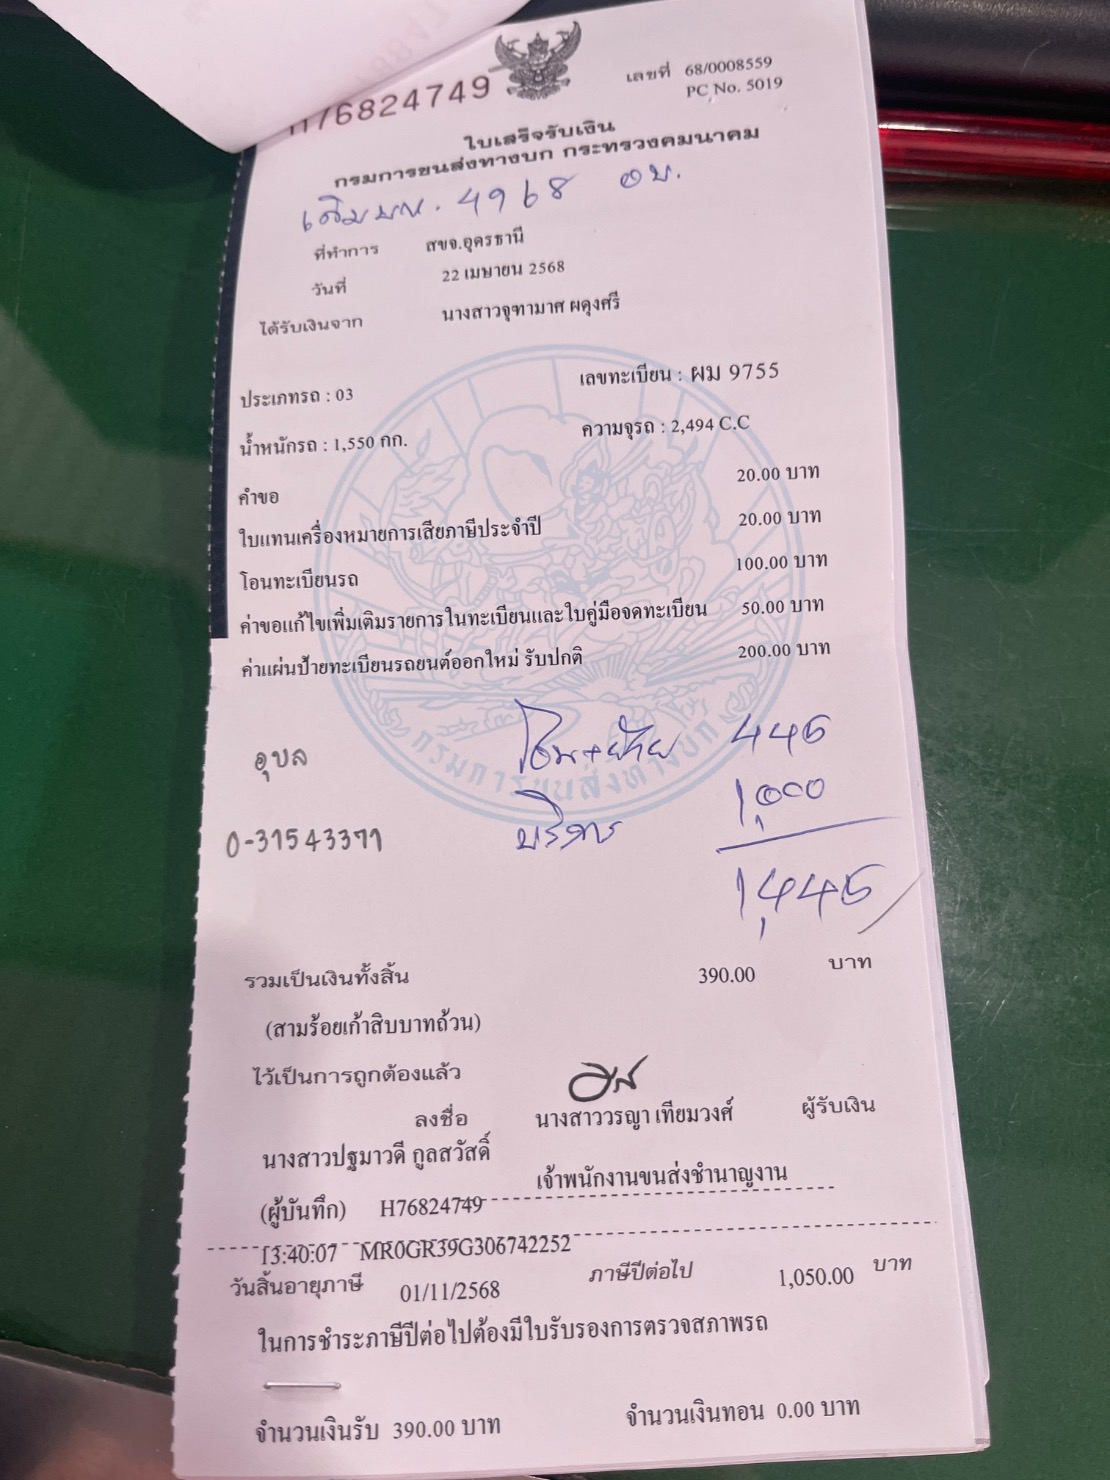 H76824749
เลขที่ 68/0008559
PC No. 5019
ใบเสร็จรับเงิน
กรมการขนส่งทางบก กระทรวงคมนาคม
เดิม บห. 4968 อบ.
ที่ทำการ สขจ.อุดรธานี
วันที่ 22 เมษายน 2568
ได้รับเงินจาก นางสาวจุฑามาศ ผดุงศรี
ประเภทรถ : 03 เลขทะเบียน : ผม 9755
น้ำหนักรถ : 1,550 กก. ความจุรถ : 2,494 C.C
คำขอ 20.00 บาท
ใบแทนเครื่องหมายการเสียภาษีประจำปี 20.00 บาท
โอนทะเบียนรถ 100.00 บาท
ค่าขอแก้ไขเพิ่มเติมรายการในทะเบียนและใบคู่มือจดทะเบียน 50.00 บาท
ค่าแผ่นป้ายทะเบียนรถยนต์ออกใหม่ รับปกติ 200.00 บาท
กรมการขนส่งทางบก
อุบล โอน+ย้าย 445
บริการ 1,000
0-31543371
1,445
รวมเป็นเงินทั้งสิ้น 390.00 บาท
(สามร้อยเก้าสิบบาทถ้วน)
ไว้เป็นการถูกต้องแล้ว
ลงชื่อ นางสาววรญา เทียมวงศ์ ผู้รับเงิน
นางสาวปฐมาวดี กูลสวัสดิ์ เจ้าพนักงานขนส่งชำนาญงาน
(ผู้บันทึก) H76824749
13:40:07 MR0GR39G306742252
วันสิ้นอายุภาษี 01/11/2568 ภาษีปีต่อไป 1,050.00 บาท
ในการชำระภาษีปีต่อไปต้องมีใบรับรองการตรวจสภาพรถ
จำนวนเงินรับ 390.00 บาท จำนวนเงินทอน 0.00 บาท